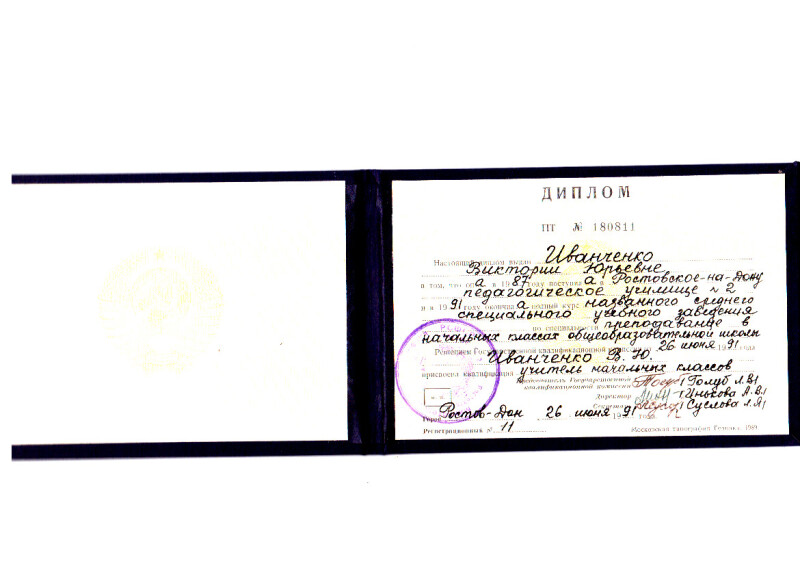 ДИПЛОМ
ПТ № 180811
Настоящий диплом выдан Иванченко
Виктории Юрьевне
в том, что он а в 19 87 поступил а в Ростовское-на-Дону
педагогическое училище №2
и в 19 91 окончил а полный курс названного среднего
специального учебного заведения
по специальности преподавание в
начальных классах общеобразовательной школы
Решением Государственной квалификационной комиссии 26 июня 1991 года
Иванченко В. Ю.
присвоена квалификация учитель начальных классов
Председатель Государственной
квалификационной комиссии Голуб Л.В.
Директор Инькова А.В.
Секретарь Суслова Л.Я.
Город Ростов-Дон 26 июня 1991 года
Регистрационный № 11
Московская типография Гознака. 1989.